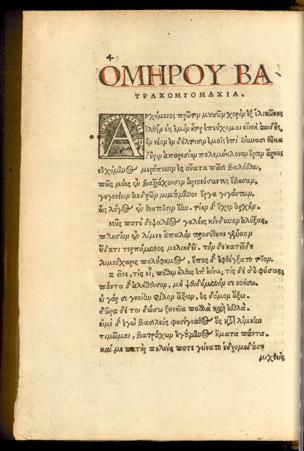 ΟΜΗΡΟΥ ΒΑ-
ΤΡΑΧΟΜΥΟΜΑΧΙΑ.
Ἀρχόμενος πρῶτον μουσῶν χορὸν ἐξ ἑλικῶνος
ἐλθεῖν εἰς ἐμὸν ἦτορ ἐπεύχομαι εἵνεκ' ἀοιδῆς,
ἣν νέον ἐν δέλτοισιν ἐμοῖς ἐπὶ γούνασι θῆκα
δῆριν ἀπειρεσίην πολεμόκλονον ἔργον ἄρηος
εὐχόμενος μερόπεσσιν ἐς οὔατα πᾶσι βαλέσθαι,
πῶς μύες ἐν βατράχοισιν ἀριστεύσαντες ἔβησαν,
γηγενέων ἀνδρῶν μιμούμενοι ἔργα γιγάντων,
Μῦς ποτε διψαλέος γαλέης κίνδυνον ἀλύξας,
πλησίον ἐν λίμνῃ ἁπαλὸν προσέθηκε γένειον
ὕδατι τερπόμενος μελιηδέϊ. τὸν δὲ κατεῖδε
λιμνόχαρις πολύφημος, ἔπος δ' ἐφθέγξατο τοῖον.
πάντα δ' ἀλήθευσον, μὴ ψευδόμενόν σε νοήσω.
εἰ γάρ σε γνοίην φίλον ἄξιον, ἐς δόμον ἄξω.
δῶρα δέ τοι δώσω ξεινήϊα πολλὰ καὶ ἐσθλά.
εἰμὶ δ' ἐγὼ βασιλεὺς φυσίγναθος ὃς κατὰ λίμνην
τιμῶμαι, βατράχων ἡγούμενος ἤματα πάντα.
καί με πατὴρ πηλεὺς ποτε γείνατο ὑδρομεδούσῃ
μιχθεὶς